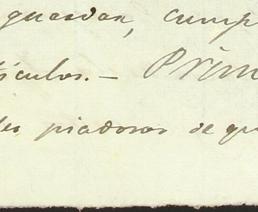 guardan, cump
tículos. — Prim
les piadosos de qu